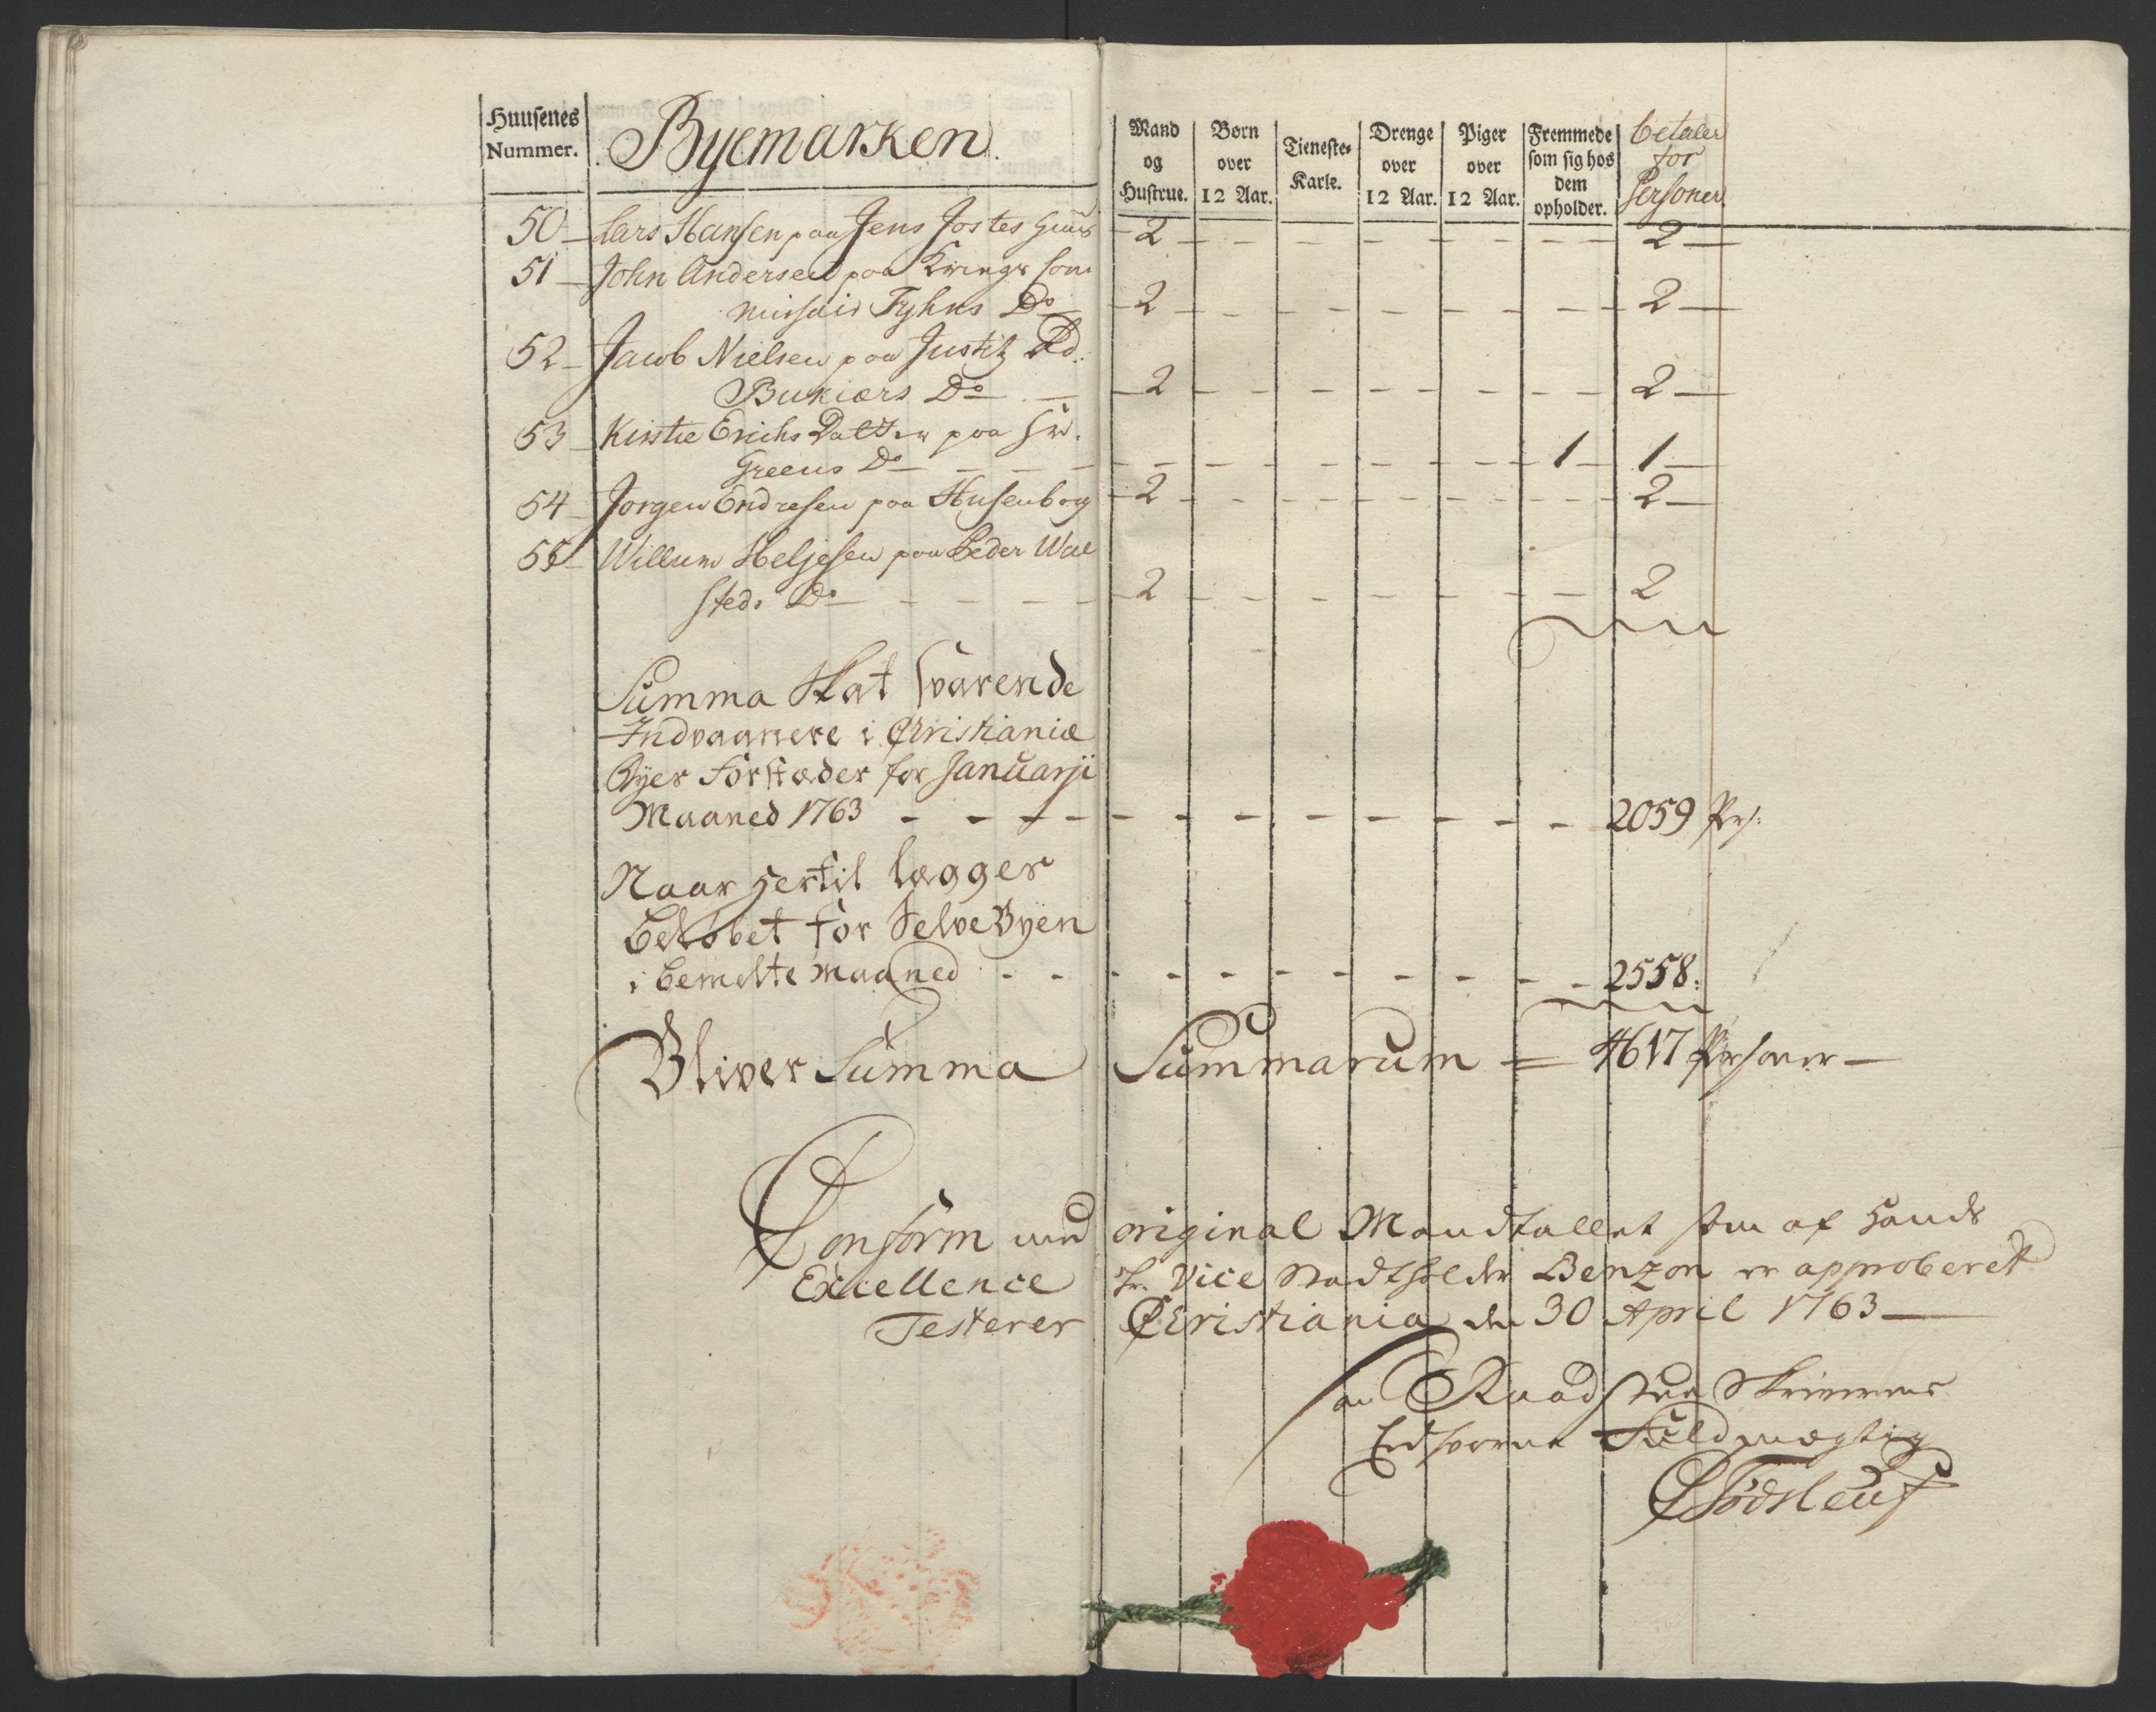 Huusenes
Nummer.
Byemarken.
Mand
og
Hustrue.
Børn
over
12 Aar.
Tieneste-
Karle.
Drenge
over
12 Aar.
Piger
over
12 Aar.
Fremmede
som sig hos
dem
opholder.
betaler
for
Personer
50 – Lars Hansen paa Jens Jostes – 2 – – – – – – 2 –
51 – John Andersen paa Krings Com
missair Fyhns Do – 2 – – – – – – 2 –
52 – Jacob Nielsen paa Justitz Rd.
Bukiærs Do – 2 – – – – – – 2 –
53 – Kirstie Erichs Datter paa Hr.
Greens Do – – – – – – 1 – 1 –
54 – Jorgen Endresen paa Husenborg – 2 – – – – – – 2 –
55 – Willum Heljesen paa Peder Wal
steds Do – – – – – 2 – – – – – – 2
Summa Skat svarende
Indvaanere i Christianiæ
Byes Forstæder for Januarji
Maaned 1763 – – – – – – – – – – – – 2059 Prs:
Naar hertil lægges
Beløbet for Selve Byen
i bemelte Maaned – – – – – – – – – – 2558:
Bliver Summa Summarum = 4617 Personer –
Conform med original Mandtallet som af Hands
Excellence Hr. Vice Stadtholder Benzon er approberet
Testerer Christiania den 30 April 1763 –
Raadstue Skriverens
Eedsvorne Fuldmægtig